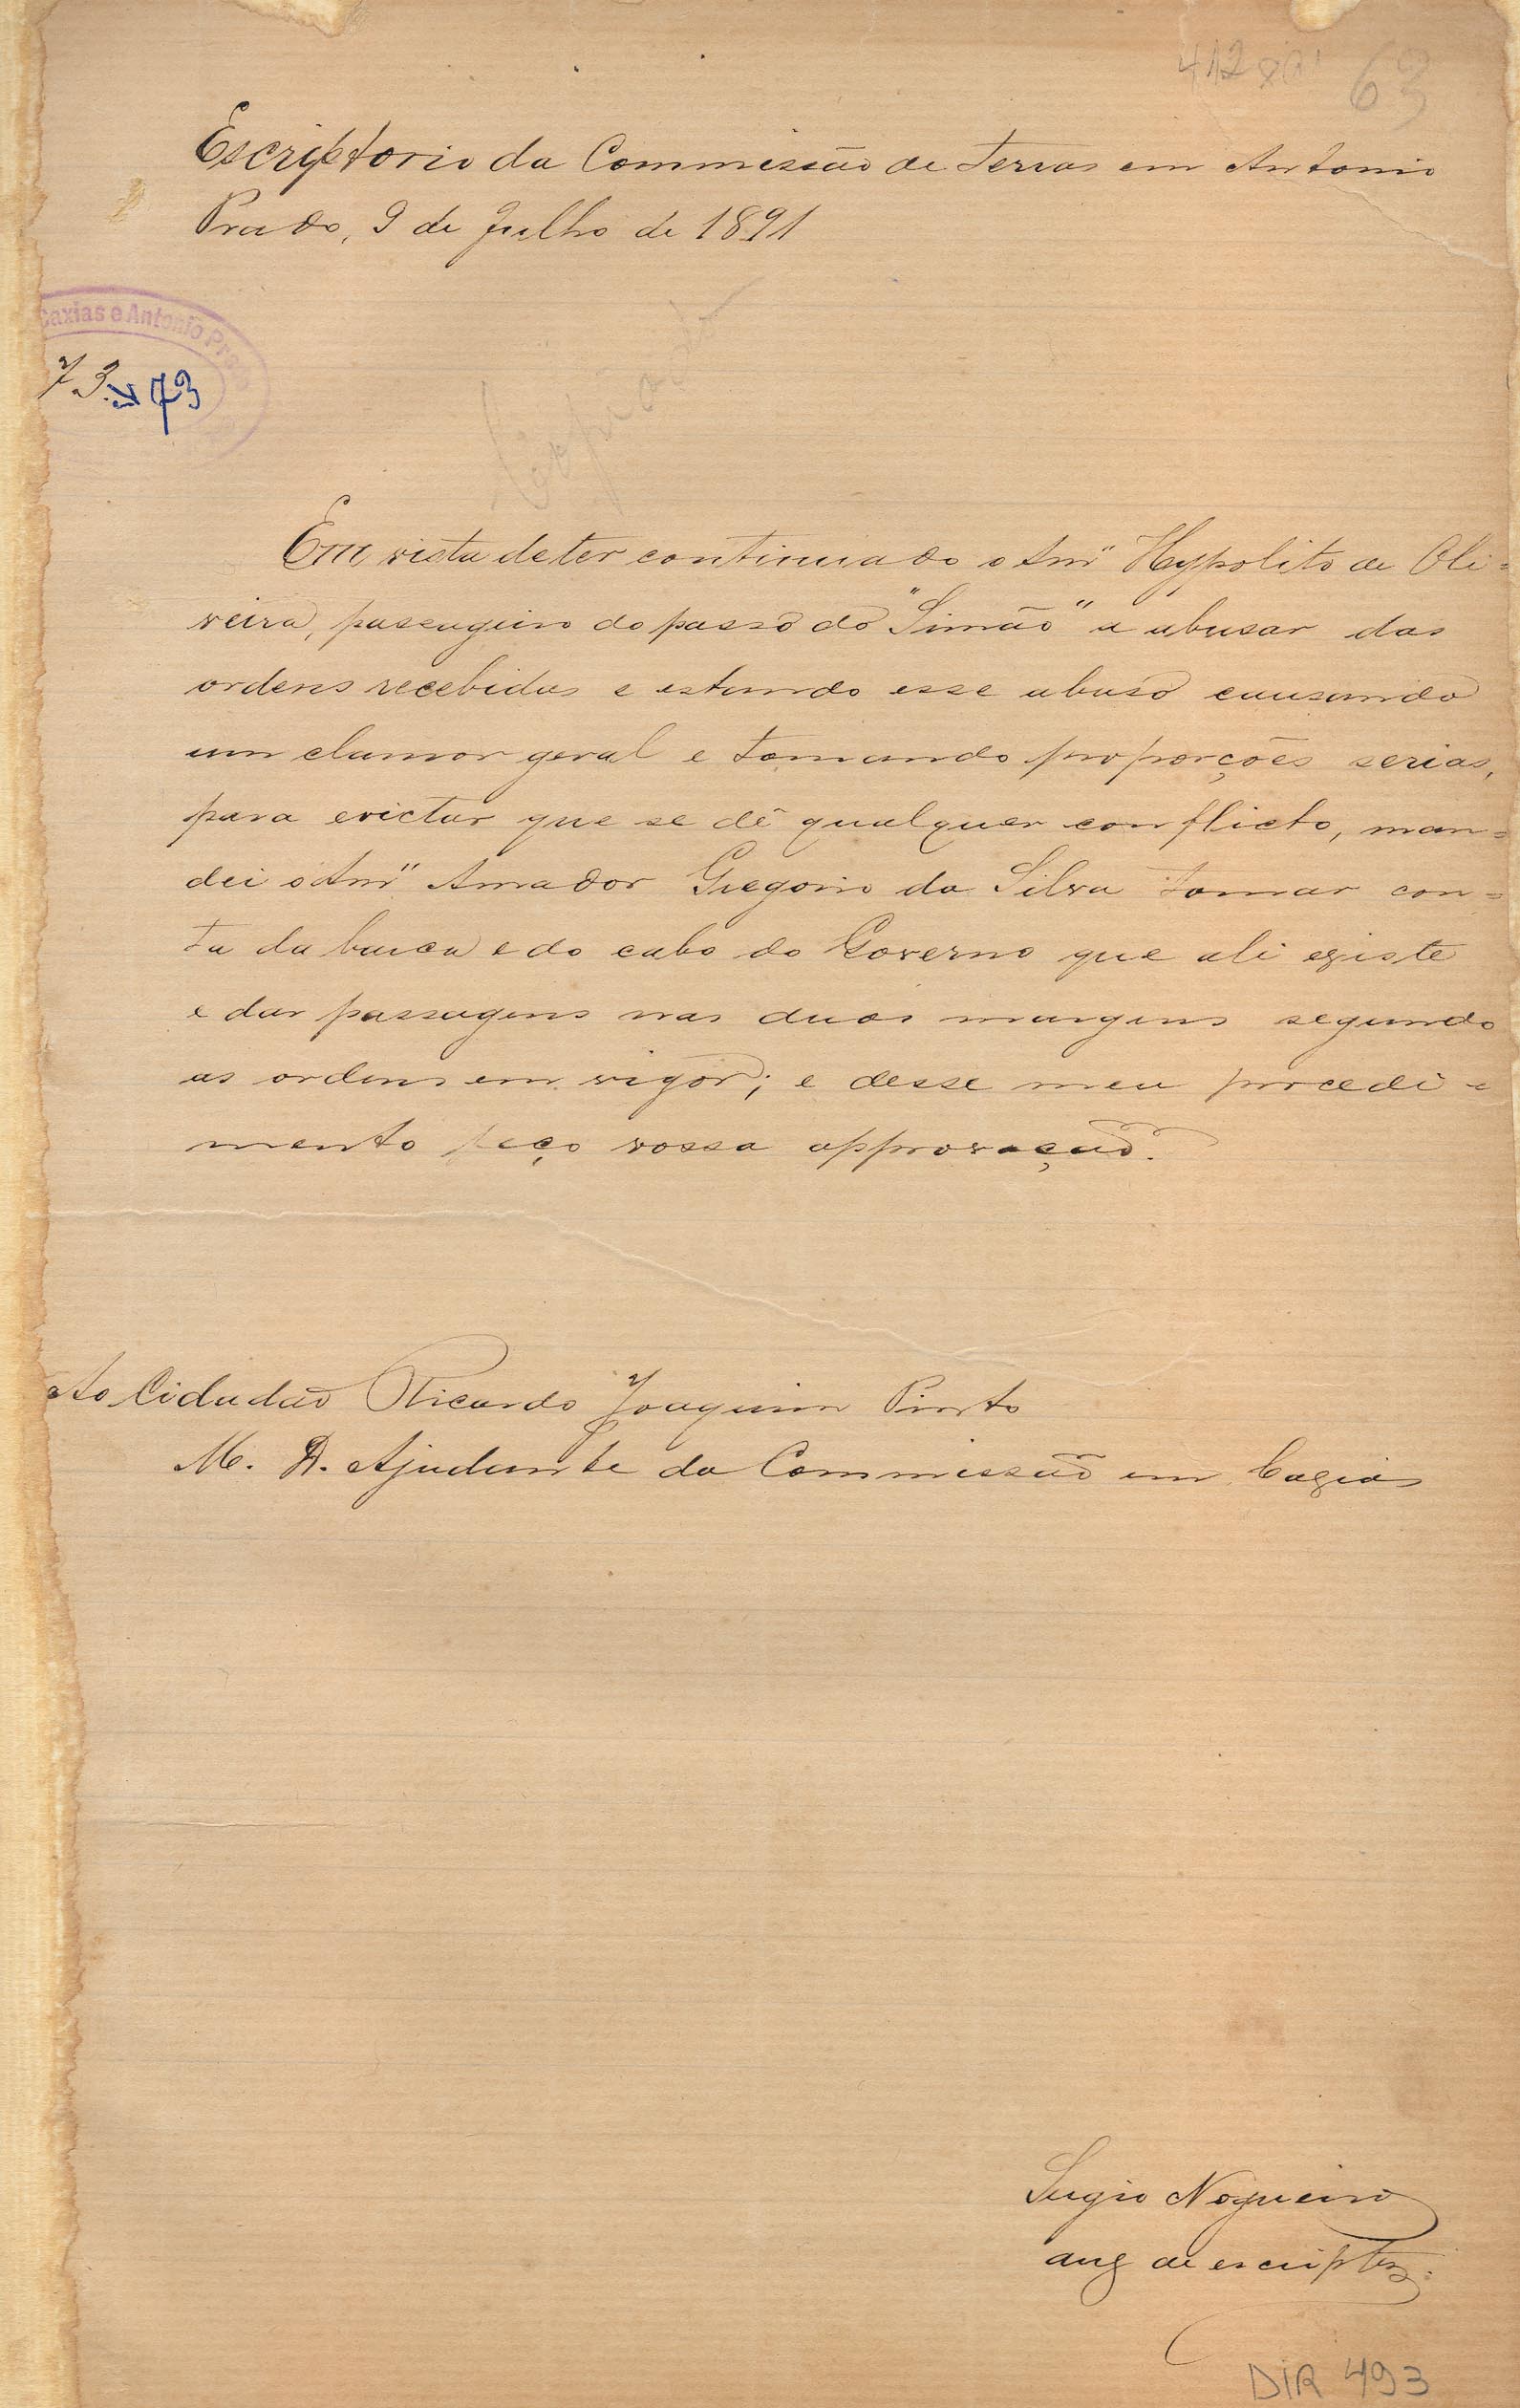 63
Escriptorio da Commissão de Terras em Antonio
Prado, 9 de Julho de 1891
Caxias e Antonio Prado
73 N 73
Copiado
Em vista de ter continuado o Snr Hypolito de Oli=
veira, passageiro do passo do "Simão" a abusar das
ordens recebidas e estando esse abuso causando
um clamor geral e tomando proporções serias,
para evictar que se dê qualquer conflicto, man=
dei o Snr Amador Gregorio da Silva tomar con=
ta da barca e do cabo do Governo que ali existe
e dar passagens nas duas margens segundo
as ordens em vigor; e desse meu procedi=
mento peço vossa approvação.
Ao Cidadão Ricardo Joaquim Pinto
M. D. Ajudante da Commissão em Caxias
Sergio Nogueira
aux de escripta
DIR 493